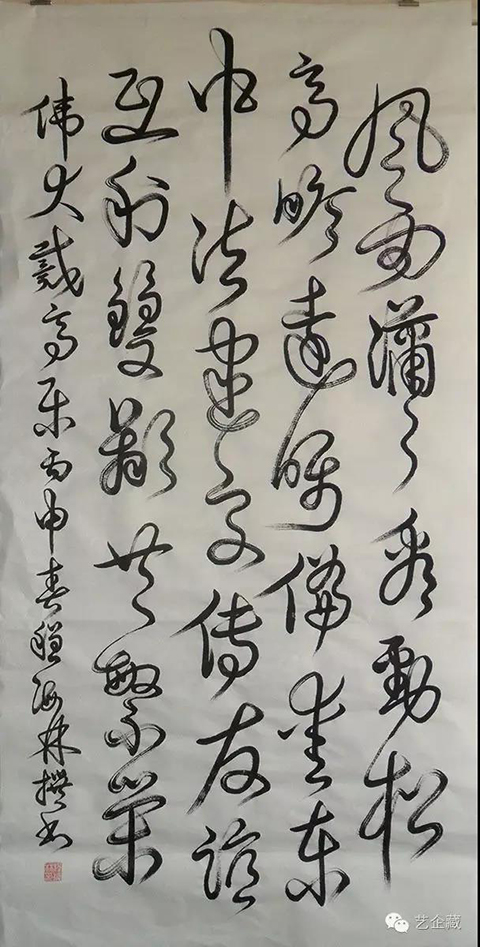 风雨潇潇看劲松
高瞻远瞩偏爱东
中法建交传友谊
互利双赢共繁荣
伟大戴高乐丙申春程海林撰书
艺企藏